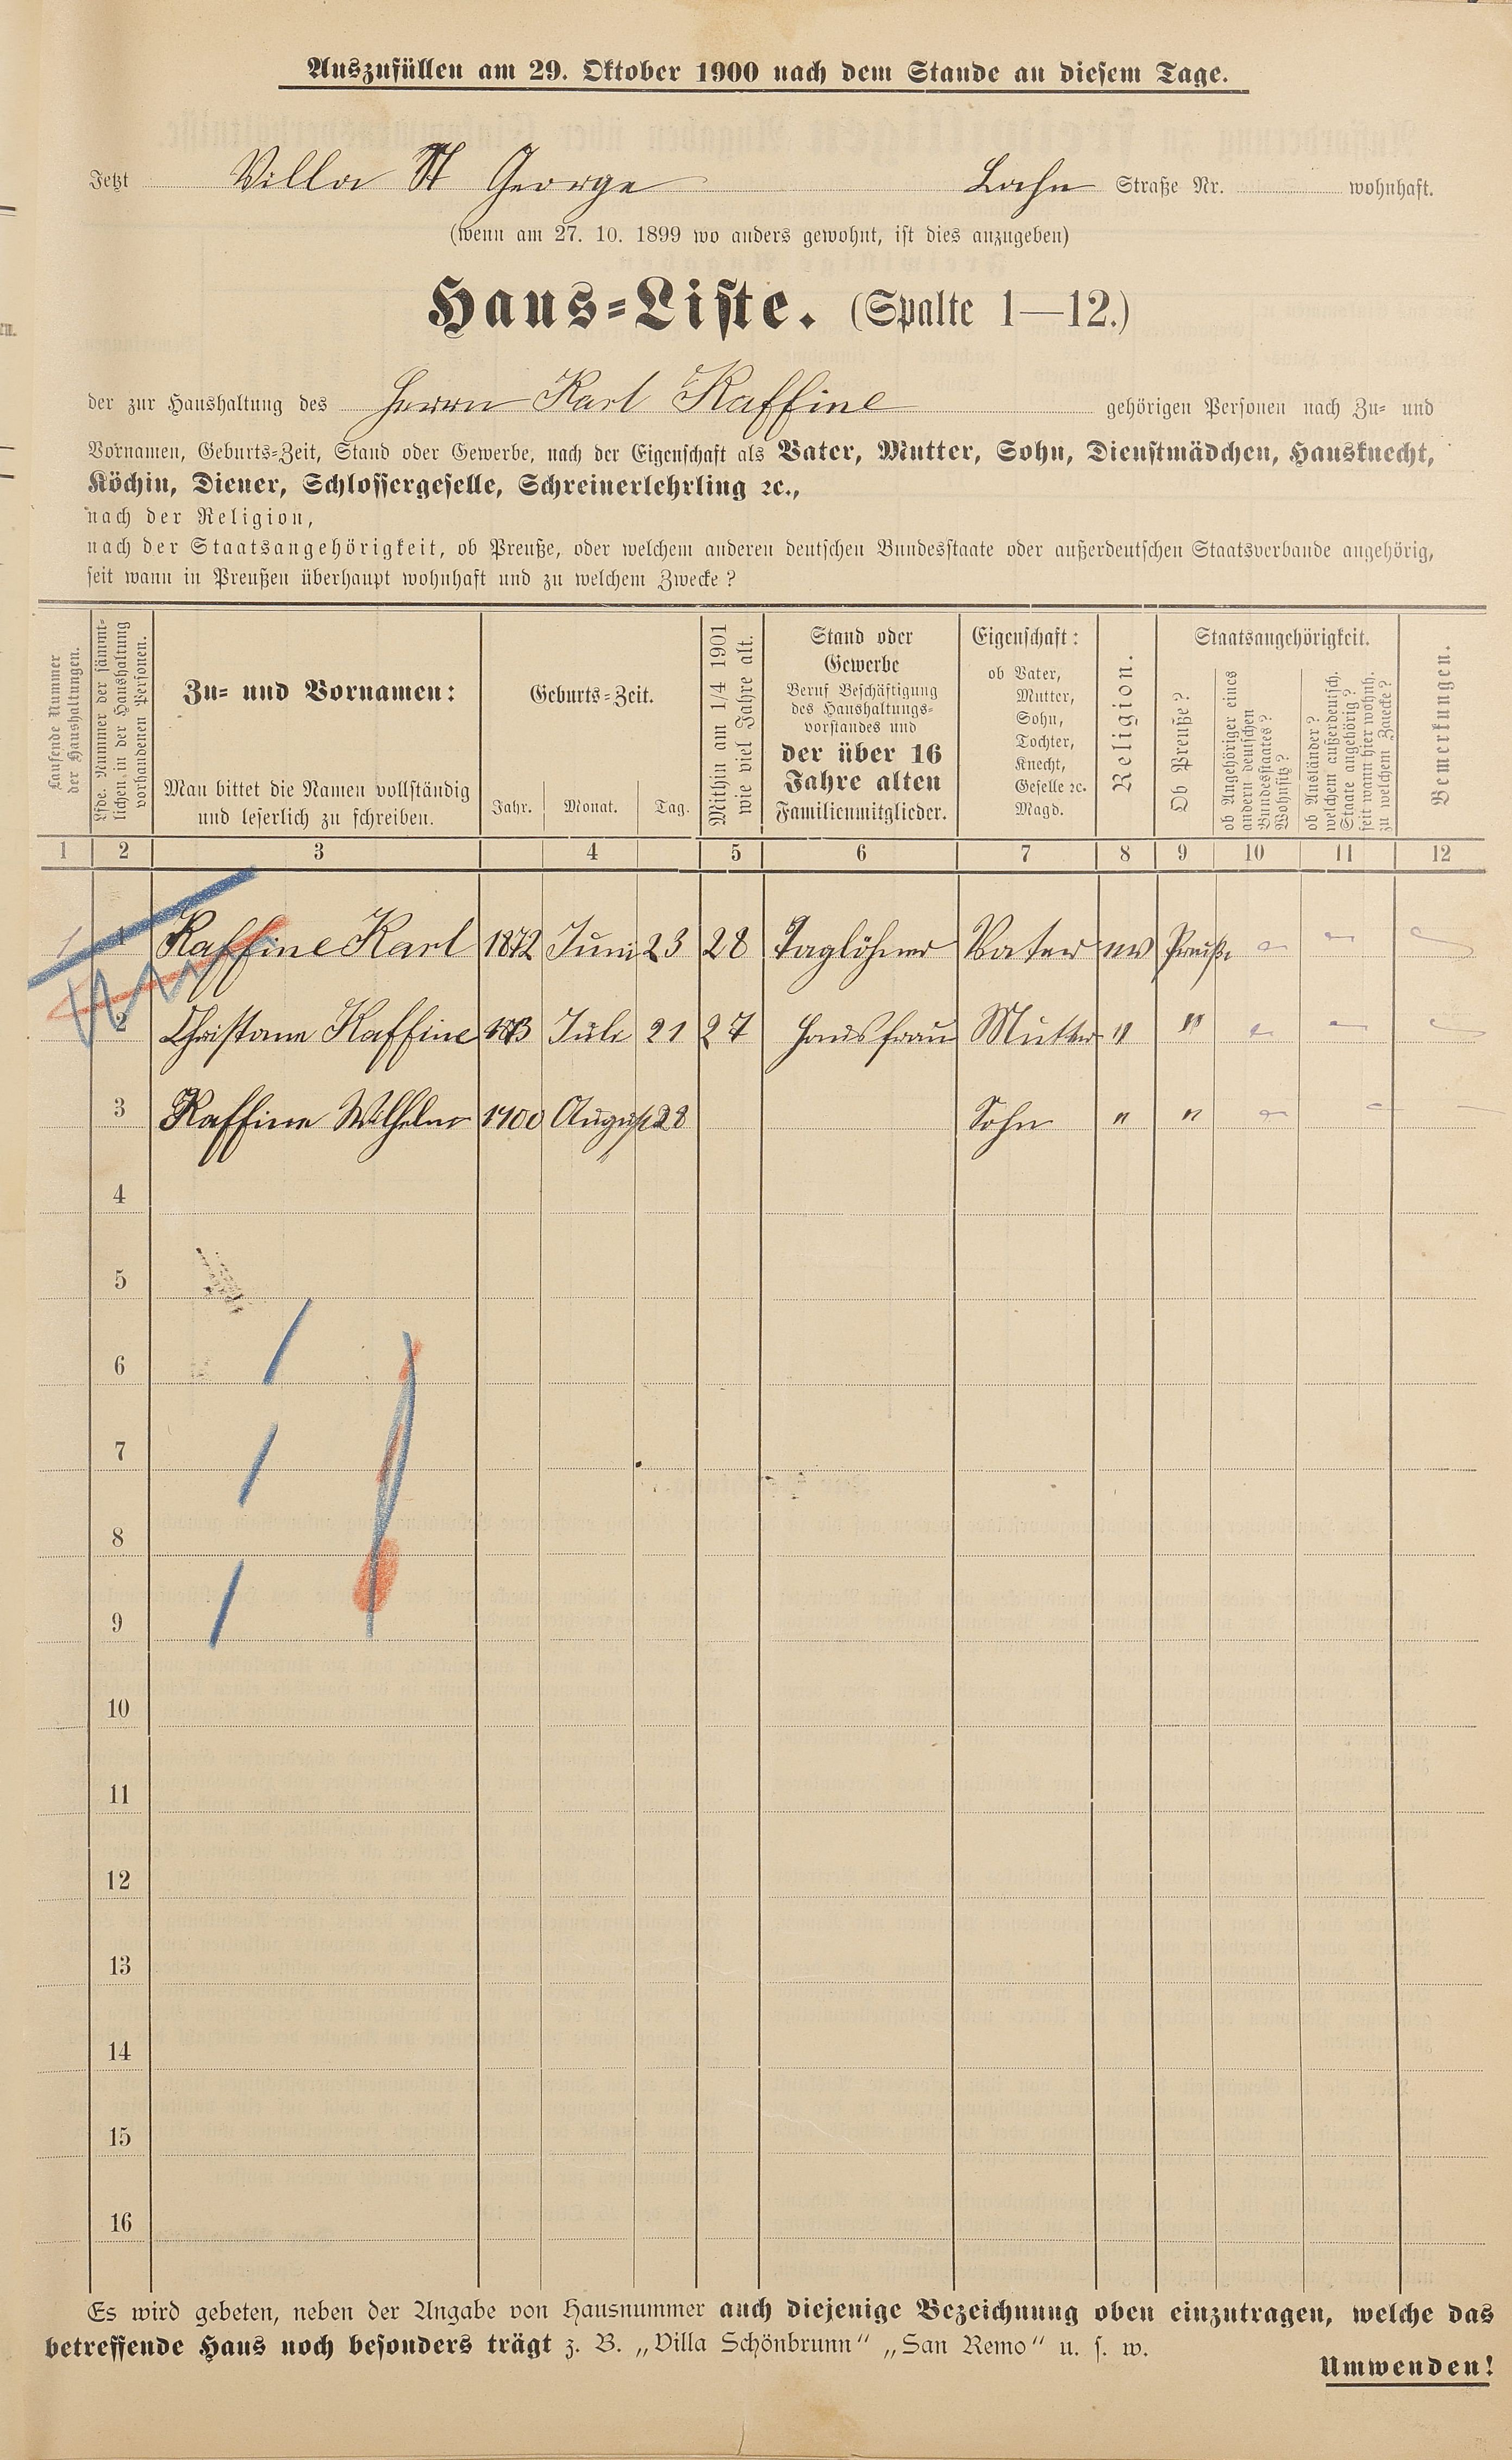 Auszufüllen am 29. Oktober 1900 nach dem Stande an diesem Tage.
Jetzt Villa St George Lahn Straße Nr. wohnhaft.
(wenn am 27. 10. 1899 wo anders gewohnt, ist dies anzugeben)
Haus=Liste. (Spalte 1—12.)
der zur Haushaltung des Herrn Karl Kaffine gehörigen Personen nach Zu= und
Vornamen, Geburts=Zeit, Stand oder Gewerbe, nach der Eigenschaft als Vater, Mutter, Sohn, Dienstmädchen, Hausknecht,
Köchin, Diener, Schlossergeselle, Schreinerlehrling ꝛc.,
nach der Religion,
nach der Staatsangehörigkeit, ob Preuße, oder welchem anderen deutschen Bundesstaate oder außerdeutschen Staatsverbande angehörig,
seit wann in Preußen überhaupt wohnhaft und zu welchem Zwecke?
Laufende Nummer
der Haushaltungen.
Lfde. Nummer der sämmt-
lichen in der Haushaltung
vorhandenen Personen.
Zu= und Vornamen:
Man bittet die Namen vollständig
und leserlich zu schreiben.
Geburts=Zeit.
Jahr. Monat. Tag.
Mithin am 1/4 1901
wie viel Jahre alt.
Stand oder
Gewerbe
Beruf Beschäftigung
des Haushaltungs=
vorstandes und
der über 16
Jahre alten
Familienmitglieder.
Eigenschaft:
ob Vater,
Mutter,
Sohn,
Tochter,
Knecht,
Geselle ꝛc.
Magd.
Religion.
Staatsangehörigkeit.
Ob Preuße?
ob Angehöriger eines
andern deutschen
Bundesstaates?
Wohnsitz?
ob Ausländer?
welchem außerdeutsch.
Staate angehörig?
seit wann hier wohnh.
zu welchem Zwecke?
Bemerkungen.
1 2 3 4 5 6 7 8 9 10 11 12
1 1 Kaffine Karl 1872 Juni 23 28 Taglöhner Vater ev Preuße
2 Christane Kaffine 1873 Juli 21 27 Hausfrau Mutter " "
3 Kaffine Wilhelm 1900 August 28 Sohn " "
4
5
6
7
8
9
10
11
12
13
14
15
16
Es wird gebeten, neben der Angabe von Hausnummer auch diejenige Bezeichnung oben einzutragen, welche das
betreffende Haus noch besonders trägt z. B. „Villa Schönbrunn“ „San Remo“ u. s. w.
Umwenden!